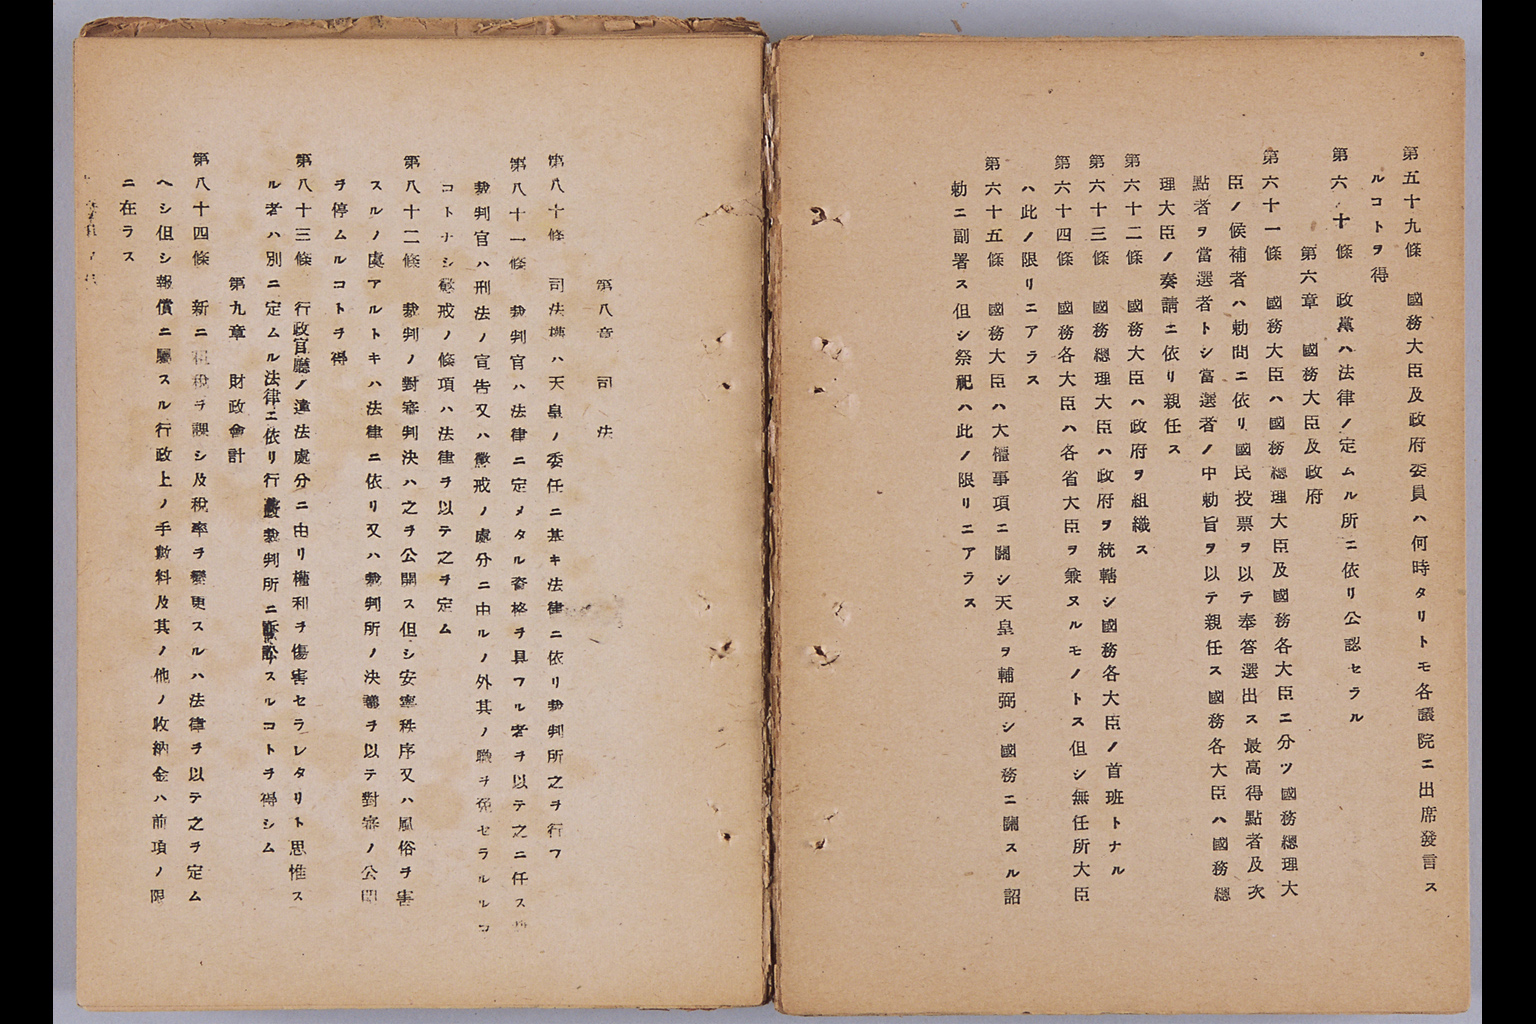 第五十九條　國務大臣及政府委員ハ何時タリトモ各議院ニ出席發言ス
ルコトヲ得
第六十條　政黨ハ法律ノ定ムル所ニ依リ公認セラル
第六章　國務大臣及政府
第六十一條　國務大臣ハ國務總理大臣及國務各大臣ニ分ツ國務總理大
臣ノ候補者ハ勅問ニ依リ國民投票ヲ以テ奉答選出ス最高得點者及次
點者ヲ當選者トシ當選者ノ中勅旨ヲ以テ親任ス國務各大臣ハ國務總
理大臣ノ奏請ニ依リ親任ス
第六十二條　國務大臣ハ政府ヲ組織ス
第六十三條　國務總理大臣ハ政府ヲ統轄シ國務各大臣ノ首班トナル
第六十四條　國務各大臣ハ各省大臣ヲ兼ヌルモノトス但シ無任所大臣
ハ此ノ限リニアラス
第六十五條　國務大臣ハ大權事項ニ關シ天皇ヲ輔弼シ國務ニ關スル詔
勅ニ副署ス但シ祭祀ハ此ノ限リニアラス
第八章　司法
第八十條　司法權ハ天皇ノ委任ニ基キ法律ニ依リ裁判所之ヲ行フ
第八十一條　裁判官ハ法律ニ定メタル資格ヲ具フル者ヲ以テ之ニ任ス
裁判官ハ刑法ノ宣告又ハ懲戒ノ處分ニ由ルノ外其ノ職ヲ免セラルルコ
コトナシ懲戒ノ條項ハ法律ヲ以テ之ヲ定ム
第八十二條　裁判ノ對審判決ハ之ヲ公開ス但シ安寧秩序又ハ風俗ヲ害
スルノ虞アルトキハ法律ニ依リ又ハ裁判所ノ決議ヲ以テ對審ノ公開
ヲ停ムルコトヲ得
第八十三條　行政官廳ノ違法處分ニ由リ權利ヲ傷害セラレタリト思惟ス
ル者ハ別ニ定ムル法律ニ依リ行政裁判所ニ訴訟スルコトヲ得シム
第九章　財政會計
第八十四條　新ニ租稅ヲ課シ及稅率ヲ變更スルハ法律ヲ以テ之ヲ定ム
ヘシ但シ報償ニ屬スル行政上ノ手數料及其ノ他ノ收納金ハ前項ノ限
ニ在ラス